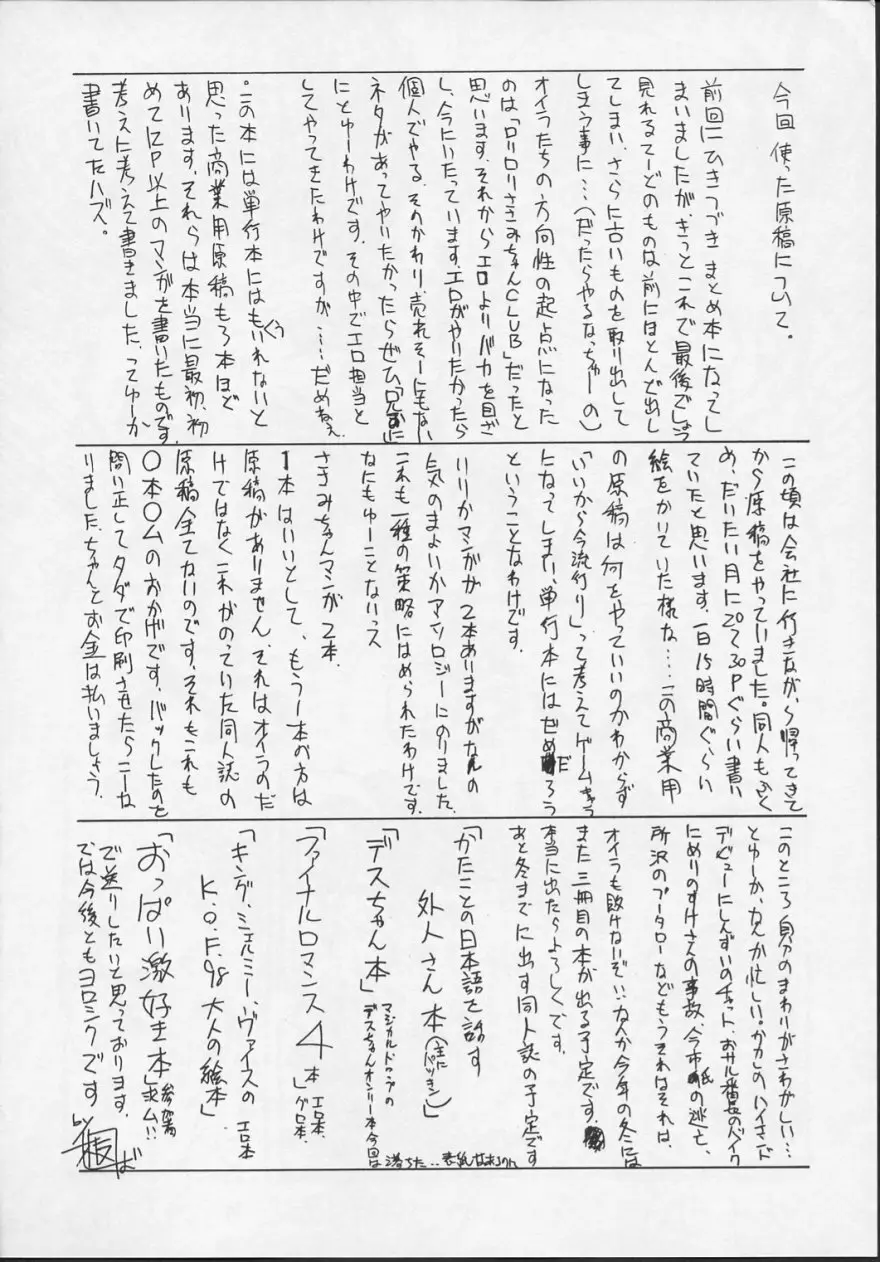 今回使った原稿について。
前回にひきつづきまとめ本になってし
まいましたが、きっとこれで最後でしょう
見れるてーどのものは前にほとんで出し
てしまい、さらに古いものを取り出して
しまう事に…(だったらやるなっちゃーの)
オイラたちの方向性の起点になった
のは「ロリロリさきみちゃんCLUB」だったと
思います。それからエロよりバカを目ざ
し、今にいたっています。エロがやりたかったら
個人でやる、そのかわり、売れそーにもない
ネタがあってやりたかったらぜひ
にとゆーわけです。その中でエロ担当と
してやってきたわけですが……だめねぇ
・この本には単行本にはもぐりいれないと
思った商業用原稿も3本ほど
あります。それらは本当に最初、初
めて12P以上のマンガを書いたものです
考えに考えて書きました、ってゆーか
書いてたハズ。
この頃は会社に行きながら、帰ってきて
から原稿をやっていました。同人もふく
め、だいたい月に20〜30Pぐらい書い
ていたと思います。一日15時間ぐらい
絵をかいていた様な…この商業用
の原稿は何をやっていいのかわからず
「いいから今流行り」って考えてゲームキャラ
になってしまい、単行本にはだめだろう
ということなわけです。
いりかマンガが2本ありますがなんの
気のまよいかアンソロジーにのりました
これも一種の策略にはめられたわけです
なにもゆーことないっス
さきみちゃんマンガ2本、
1本はいいとして、もう1本の方は
原稿がありません、それはオイラのだ
けではなくこれがのっていた同人誌の
原稿全てないのです。それもこれも
〇本〇ムのおかげです。バックしたのを
問い正してタダで印刷させたらこーな
りました、ちゃんとお金は払いましょう。
このところ自分のまわりがさわがしい…
とゆーか、なんか忙しい。
デビューにしんずいのチャット、おサル番長のバイク
にめりのすけさんの事故、今市氏の逃亡、
所沢のプータローなどもうそれはそれは、
オイラも負けないぞ!!なんか今年の冬には
また三冊目の本が出る予定です!
本当に出たらよろしくです。
あと冬までに出す同人誌の予定です
「かたことの日本語を話す
外人さん本(主にパツキン)」
「デスちゃん本」マジカルドロップの
デスちゃんオンリー本今回は
落ちた‥表紙はあるのん
「ファイナルロマンス4本」エロ本、グロ本、
「キング、シェルミー、ヴァイスの エロ本
K.O.F.98 大人の絵本」
「おっぱい激好き本」参加者求ム!!
で送りしたいと思っております。
では今後ともヨロシクです
by